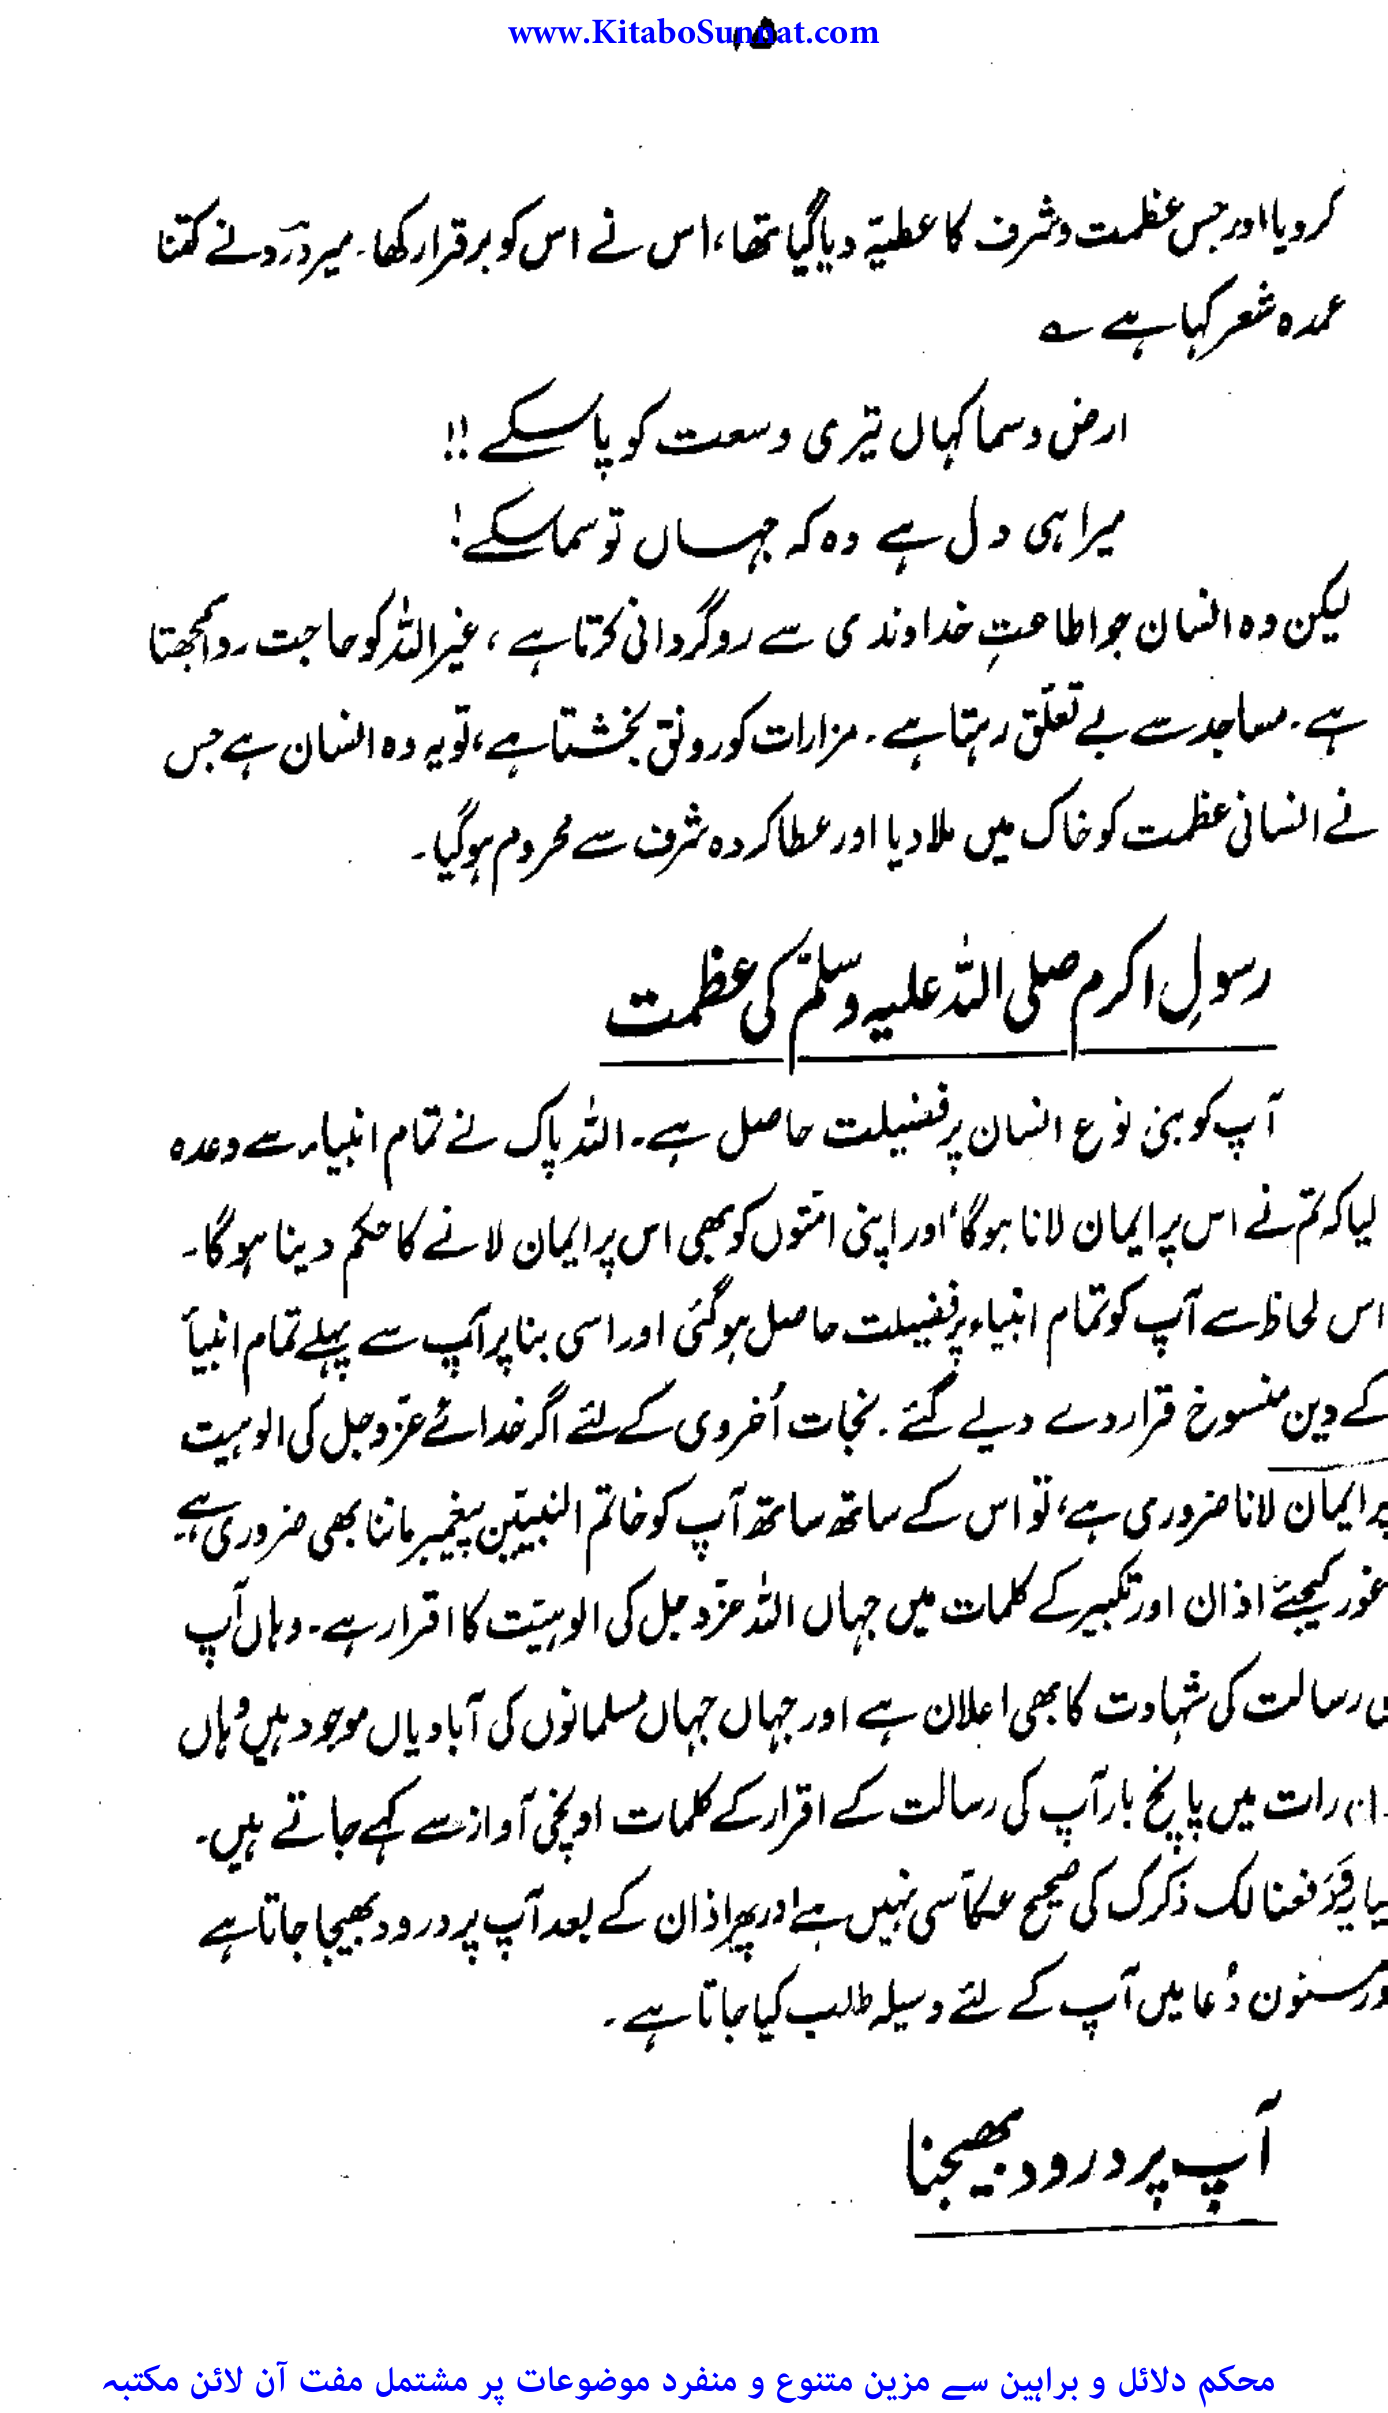 www.KitaboSunnat.com
۱۵
کر دیا اور جس عظمت و شرف کا عطیّہ دیا گیا تھا، اس نے اس کو برقرار رکھا۔ میر دردؔ نے کتنا
عمدہ شعر کہا ہے ؎
ارض و سما کہاں تیری وسعت کو پا سکے !!
میرا ہی دل ہے وہ کہ جہاں تو سما سکے !
لیکن وہ انسان جو اطاعتِ خداوندی سے روگردانی کرتا ہے ، غیر اللہ کو حاجت روا سمجھتا
ہے ۔ مساجد سے بے تعلّق رہتا ہے ۔ مزارات کو رونق بخشتا ہے ، تو یہ وہ انسان ہے جس
نے انسانی عظمت کو خاک میں ملا دیا اور عطا کردہ شرف سے محروم ہو گیا ۔
رسولِ اکرم صلی اللہ علیہ وسلّم کی عظمت
آپ کو بنی نوع انسان پر فضیلت حاصل ہے ۔ اللہ پاک نے تمام انبیاء سے وعدہ
لیا کہ تم نے اس پر ایمان لانا ہو گا، اور اپنی امّتوں کو بھی اس پر ایمان لانے کا حکم دینا ہو گا ۔
اس لحاظ سے آپ کو تمام انبیاء پر فضیلت حاصل ہو گئی اور اسی بنا پر آپ سے پہلے تمام انبیأ
کے دین منسوخ قرار دے دیے گئے ۔ نجات اُخروی کے لئے اگر خدائے عزّ و جل کی الوہیت
پر ایمان لانا ضروری ہے ، تو اس کے ساتھ ساتھ آپ کو خاتم النبیّین پیغمبر ماننا بھی ضروری ہے
غور کیجئے اذان اور تکبیر کے کلمات میں جہاں اللہ عزّ و جل کی الوہیّت کا اقرار ہے ۔ وہاں آپ
رسالت کی شہادت کا بھی اعلان ہے اور جہاں جہاں مسلمانوں کی آبادیاں موجود ہیں وہاں
رات میں پانچ بار آپ کی رسالت کے اقرار کے کلمات اونچی آواز سے کہے جاتے ہیں ۔
وَرَفعنا لک ذکرک کی صحیح عکاّسی نہیں ہے اور پھر اذان کے بعد آپ پر درود بھیجا جاتا ہے
ور مسنون دُعا میں آپ کے لئے وسیلہ طلب کیا جاتا ہے ۔
آپ پر درود بھیجنا
محکم دلائل و براہین سے مزین متنوع و منفرد موضوعات پر مشتمل مفت آن لائن مکتبہ